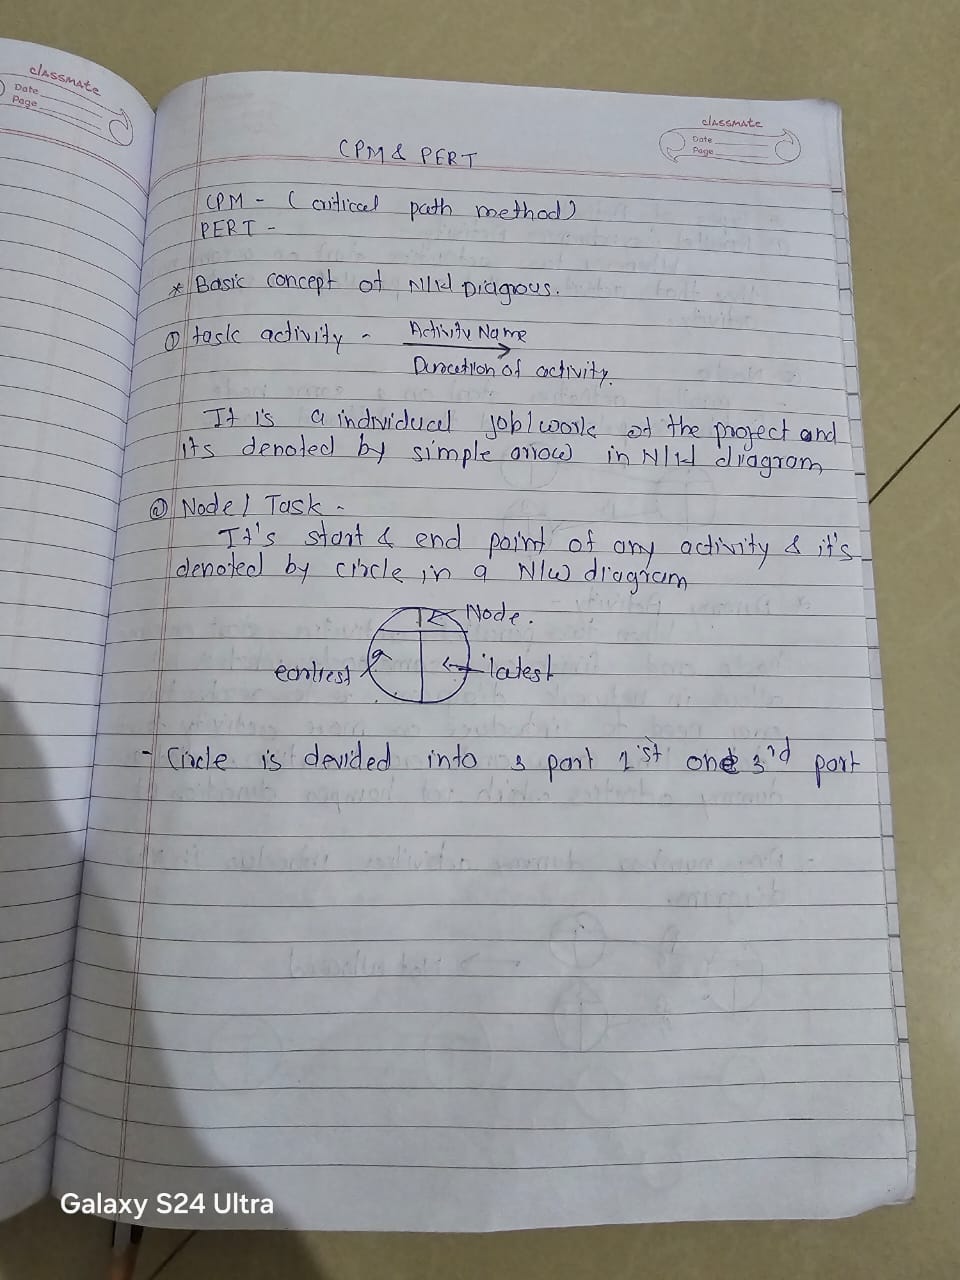 classmate
Date
Page
classmate
Date
Page
CPM & PERT
CPM - (critical path method)
PERT -
* Basic concept of N/W Diagrous.
① task activity - Activity Name
Duration of activity.
It is a individual job/work of the project and
its denoted by simple arrow in N/W diagram
② Node / Task -
It's start & end point of any activity & it's
denoted by circle in a N/W diagram
1 Node.
earliest latest
- Circle is devided into 3 part 1st one 3rd part
Galaxy S24 Ultra